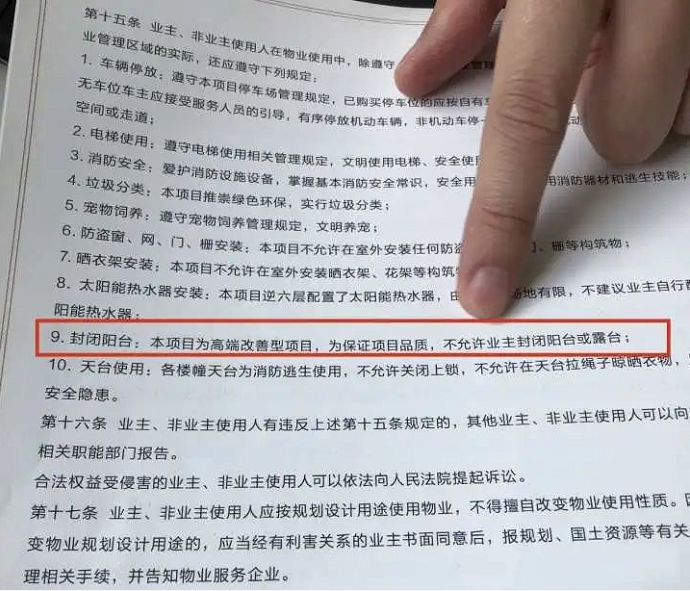 第十五条 业主、非业主使用人在物业使用中，除遵守
业管理区域的实际，还应遵守下列规定：
1. 车辆停放：遵守本项目停车场管理规定，已购买停车位的应按自有
无车位车主应接受服务人员的引导，有序停放机动车辆，非机动车停
空间或走道；
2. 电梯使用：遵守电梯使用相关管理规定，文明使用电梯、安全使
3. 消防安全：爱护消防设施设备，掌握基本消防安全常识，安全用 消防器材和逃生技能；
4. 垃圾分类：本项目推崇绿色环保，实行垃圾分类；
5. 宠物饲养：遵守宠物饲养管理规定，文明养宠；
6. 防盗窗、网、门、栅安装：本项目不允许在室外安装任何防盗 、栅等构筑物；
7. 晒衣架安装：本项目不允许在室外安装晒衣架、花架等构筑
8. 太阳能热水器安装：本项目逆六层配置了太阳能热水器， 地有限，不建议业主自行
阳能热水器；
9. 封闭阳台：本项目为高端改善型项目，为保证项目品质，不允许业主封闭阳台或露台；
10. 天台使用：各楼幢天台为消防逃生使用，不允许关闭上锁，不允许在天台拉绳子晾晒衣物，
安全隐患。
第十六条 业主、非业主使用人有违反上述第十五条规定的，其他业主、非业主使用人可以向
相关职能部门报告。
合法权益受侵害的业主、非业主使用人可以依法向人民法院提起诉讼。
第十七条 业主、非业主使用人应按规划设计用途使用物业，不得擅自改变物业使用性质。
变物业规划设计用途的，应当经有利害关系的业主书面同意后，报规划、国土资源等有关
理相关手续，并告知物业服务企业。